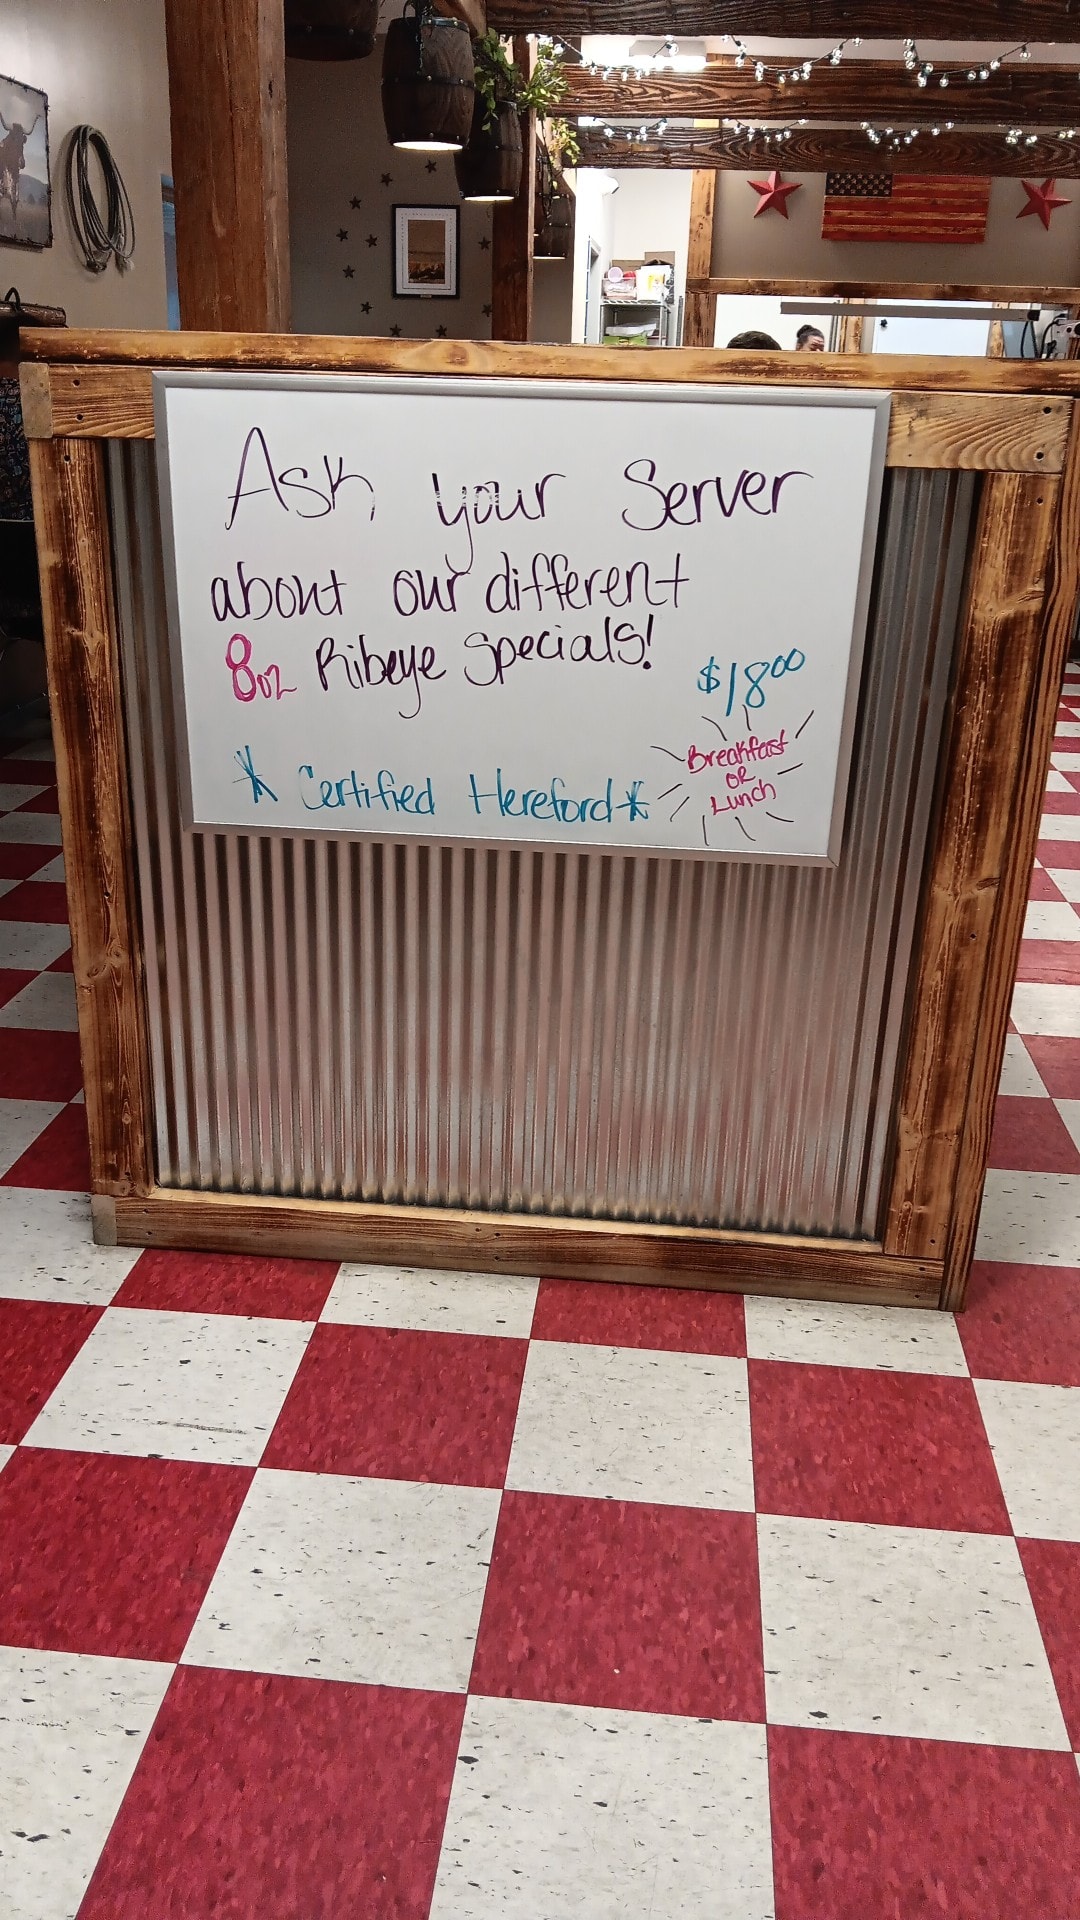 Ask your Server
about our different
8oz Ribeye Specials!
$18.00
Breakfast
or
Lunch
* Certified Hereford *